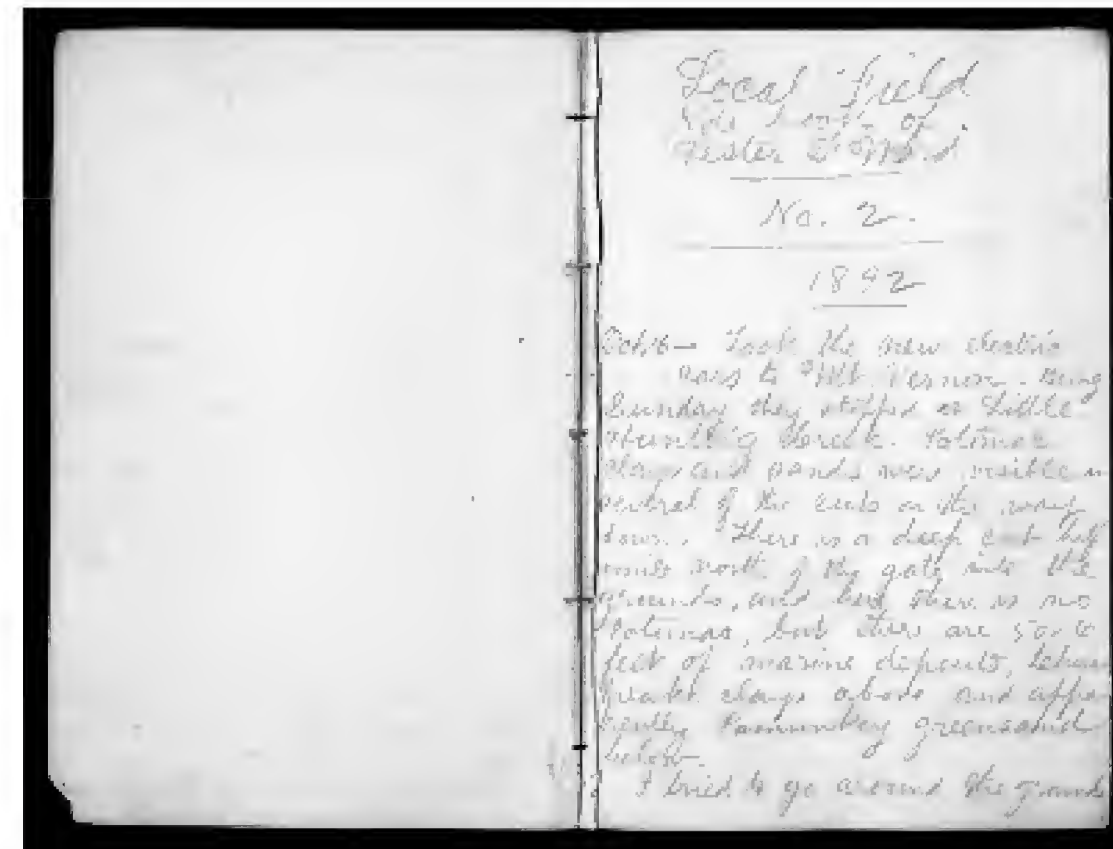 Local Field
Note book of
Lester F. Ward
No. 2.
1892
Oct. 16 – Took the new electric
cars to Mt. Vernon. Being
Sunday they stopped at Little
Hunting Creek. Potomac
clays and sands were visible in
several of the cuts on the way
down. There is a deep cut half
mile north of the gate into the
grounds, and here there is no
Potomac, but there are 50 to
feet of marine deposits,
clays above and appa-
rently Pamunkey greensand
below.
I tried to go around the grounds